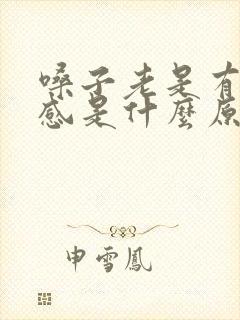 嗓子老是有
感是什麼原
申雪鳳